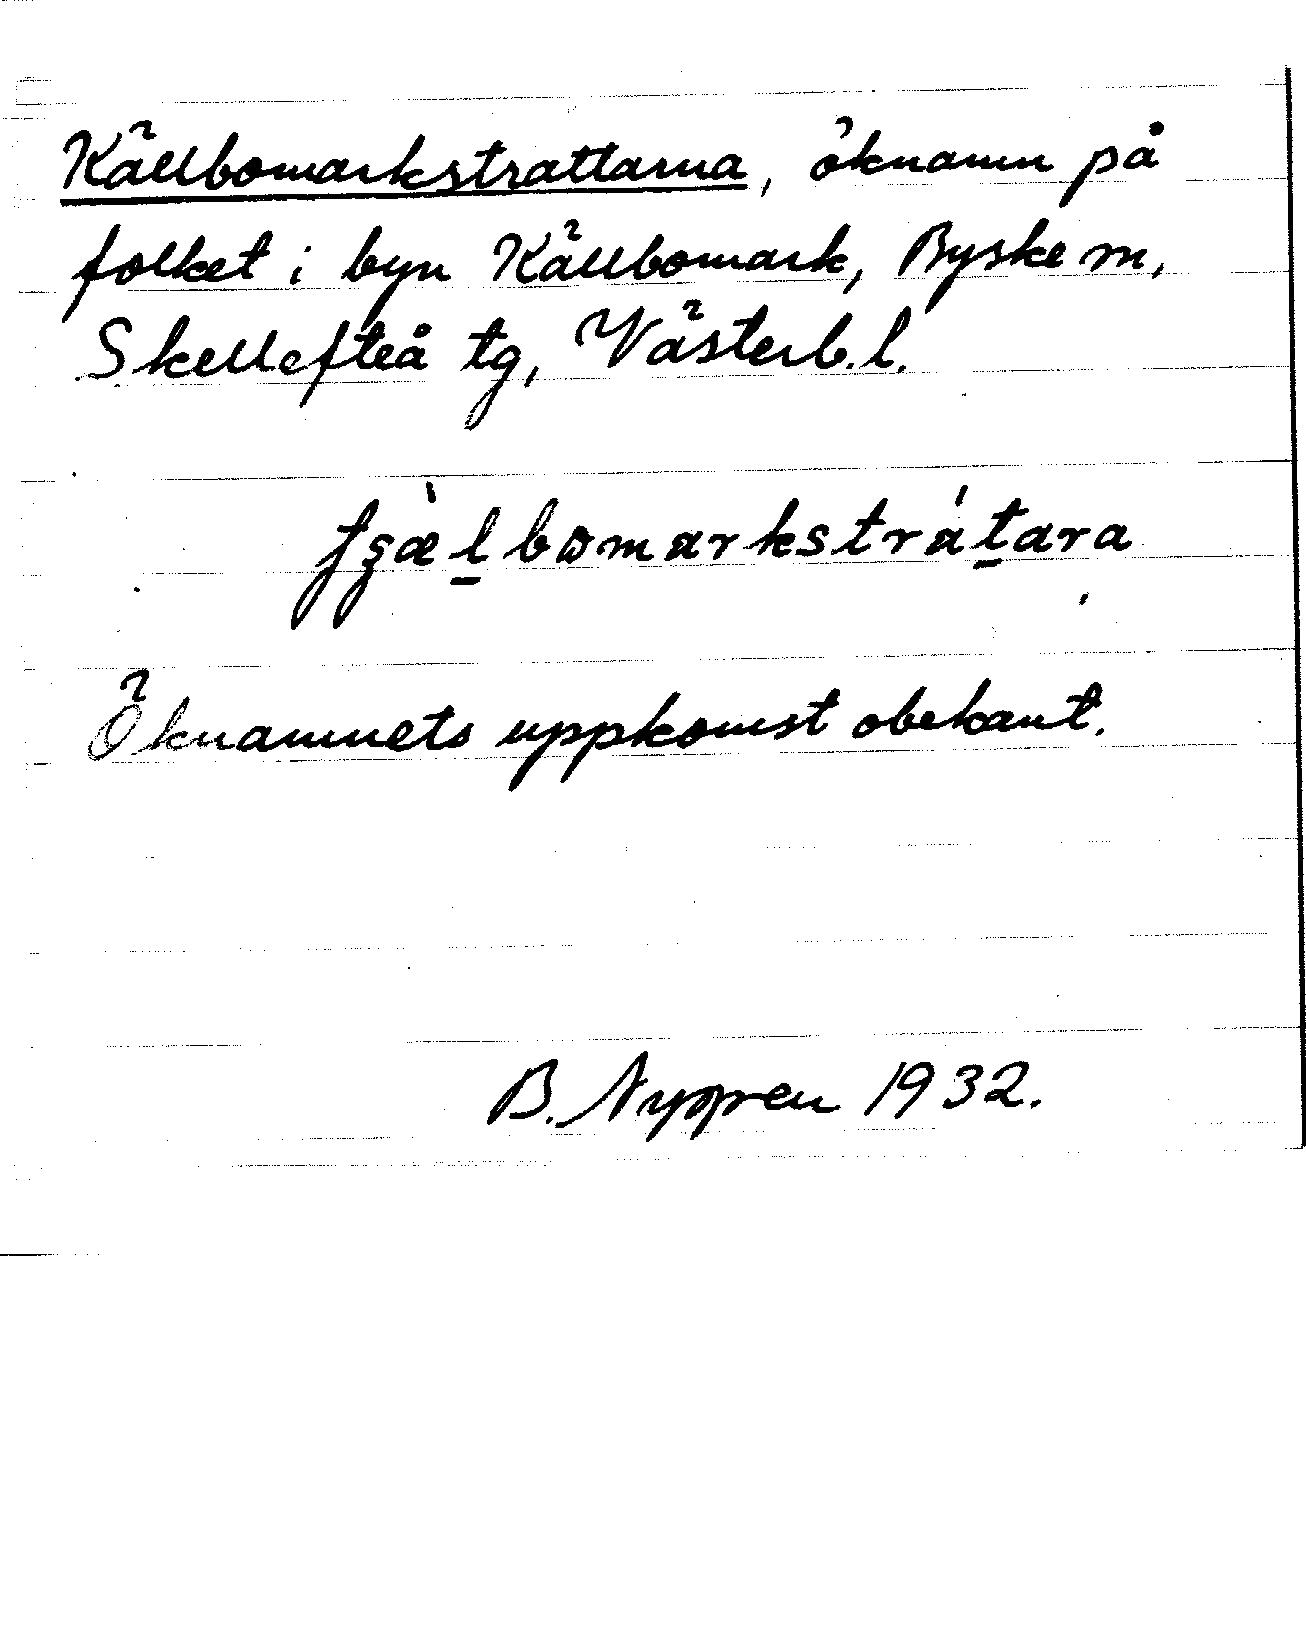 Källbomarkstrattarna, öknamn på
folket i byn Källbomark, Byske sn,
Skellefteå tg, Västerb. l.
Öknamnets uppkomst obekant.
B. Nygren 1932.